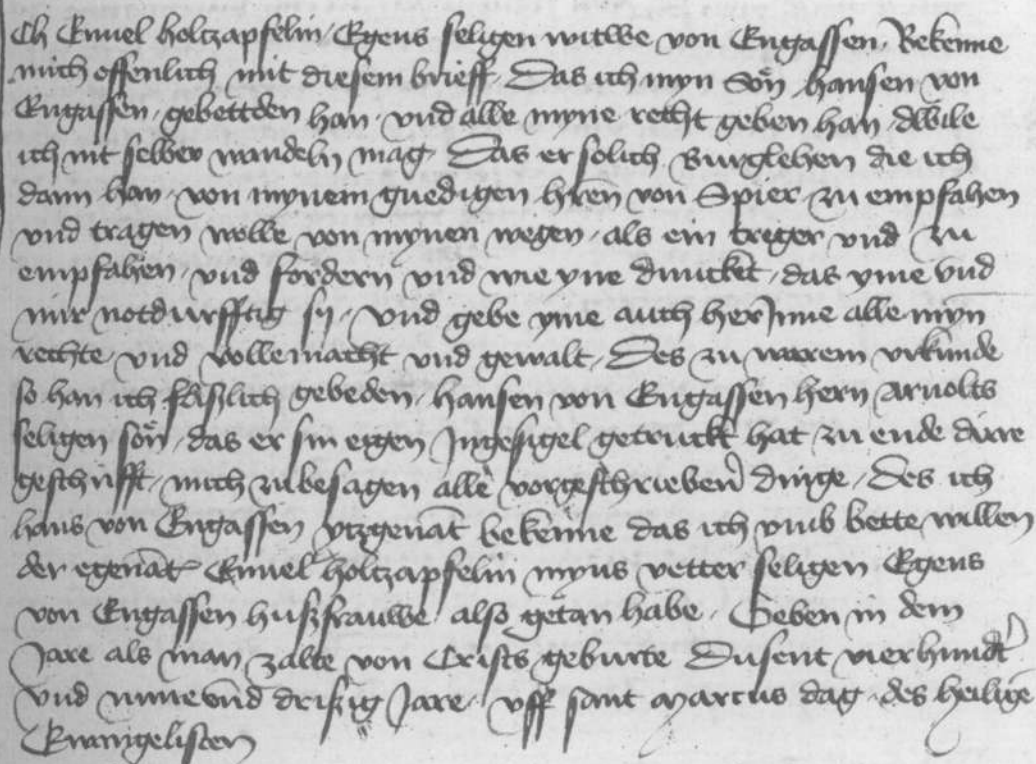 Ch Ennel holtzapfelin Egens seligen witwe von Engassen Bekenne
mich offenlich mit diesem brieff Das ich myn Sön hansen von
Engassen gebettden han vnd alle myne recht geben han dwile
ich nit selber wandeln mag Das er solich Burglehen die ich
dann han von mynem gnedigen hren von Spier zu empfahen
vnd tragen wolle von mynen wegen als ein treger vnd zu
empfahen vnd fordern vnd wie yne duncket das yme vnd
mir notdurfftig sy Vnd gebe yme auch her Inne alle myn
rechte vnd volle macht vnd gewalt Des zu warem vrkunde
so han ich flißlich gebeden hansen von Engassen hern Arnolts
seligen sön das er sin eigen Ingesigel getruckt hat zu ende dirre
geschrifft mich zubesagen alle vorgeschrieben dinge Des ich
hans von Engassen ytzgenat bekenne das ich vmb bette willen
der egenat Ennel holtzapfelin myns vetter seligen Egens
von Engassen hußfrauwe also getan habe Geben in dem
Jare als man zalte von Crists geburte Dusent vierhundt
vnd nune vnd drißig Jare vff sant Marcus dag des heilige
Ewangelisten